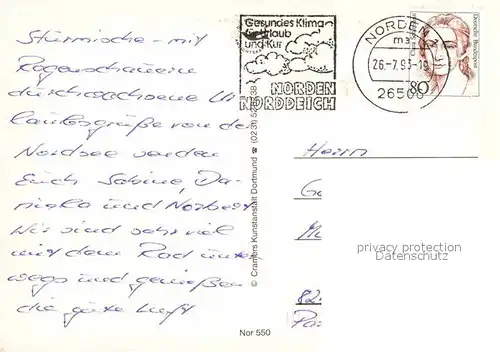 Stürmische – mit
Regenschauern
durchwachsene Ur
laubsgrüße von der
Nordsee senden
Euch Sabine, Da-
niela und Norbert
Wir sind sehr viel
mit dem Rad unter
wegs und genießen
die gute Luft
Gesundes Klima
für Urlaub
und Kur
NORDEN
NORDDEICH
NORDEN
ma
26.-7.93-19
26506
Deutsche Bundespost
80
© Cramers Kunstanstalt Dortmund ☎ (0231)
Herrn
G
M
privacy protection
Datenschutz
82
Nor 550